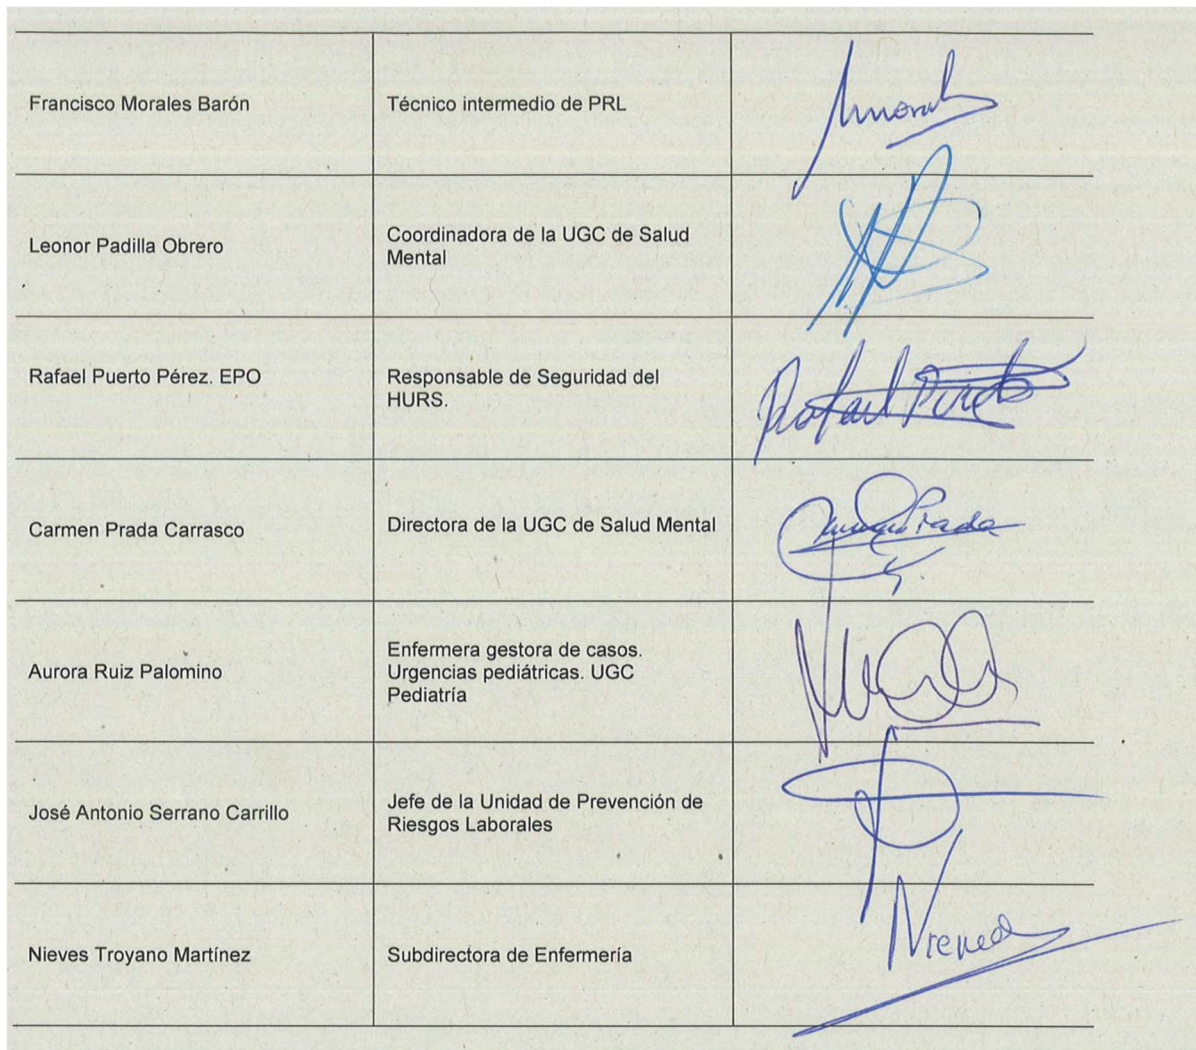 Francisco Morales Barón
Técnico intermedio de PRL
Morales
Leonor Padilla Obrero
Coordinadora de la UGC de Salud
Mental
Rafael Puerto Pérez. EPO
Responsable de Seguridad del
HURS.
Rafael Puerto
Carmen Prada Carrasco
Directora de la UGC de Salud Mental
Carmen Prada
Aurora Ruiz Palomino
Enfermera gestora de casos.
Urgencias pediátricas. UGC
Pediatría
José Antonio Serrano Carrillo
Jefe de la Unidad de Prevención de
Riesgos Laborales
Nieves Troyano Martínez
Subdirectora de Enfermería
Nieves